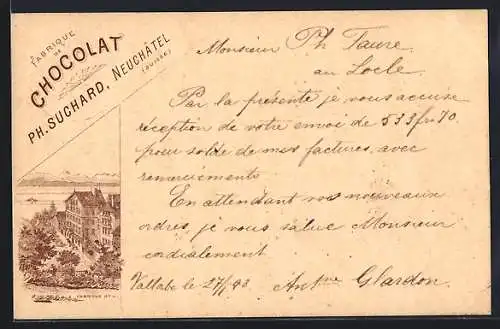 FABRIQUE
DE
CHOCOLAT
PH. SUCHARD, NEUCHÂTEL
(SUISSE)
Monsieur Ph Faure
au Locle
Par la présente je vous accuse
réception de votre envoi de 533 fr 70
pour solde de mes factures, avec
remerciements
En attendant vos nouveaux
ordres, je vous salue Monsieur
cordialement
le 27/ 93 Glardon.